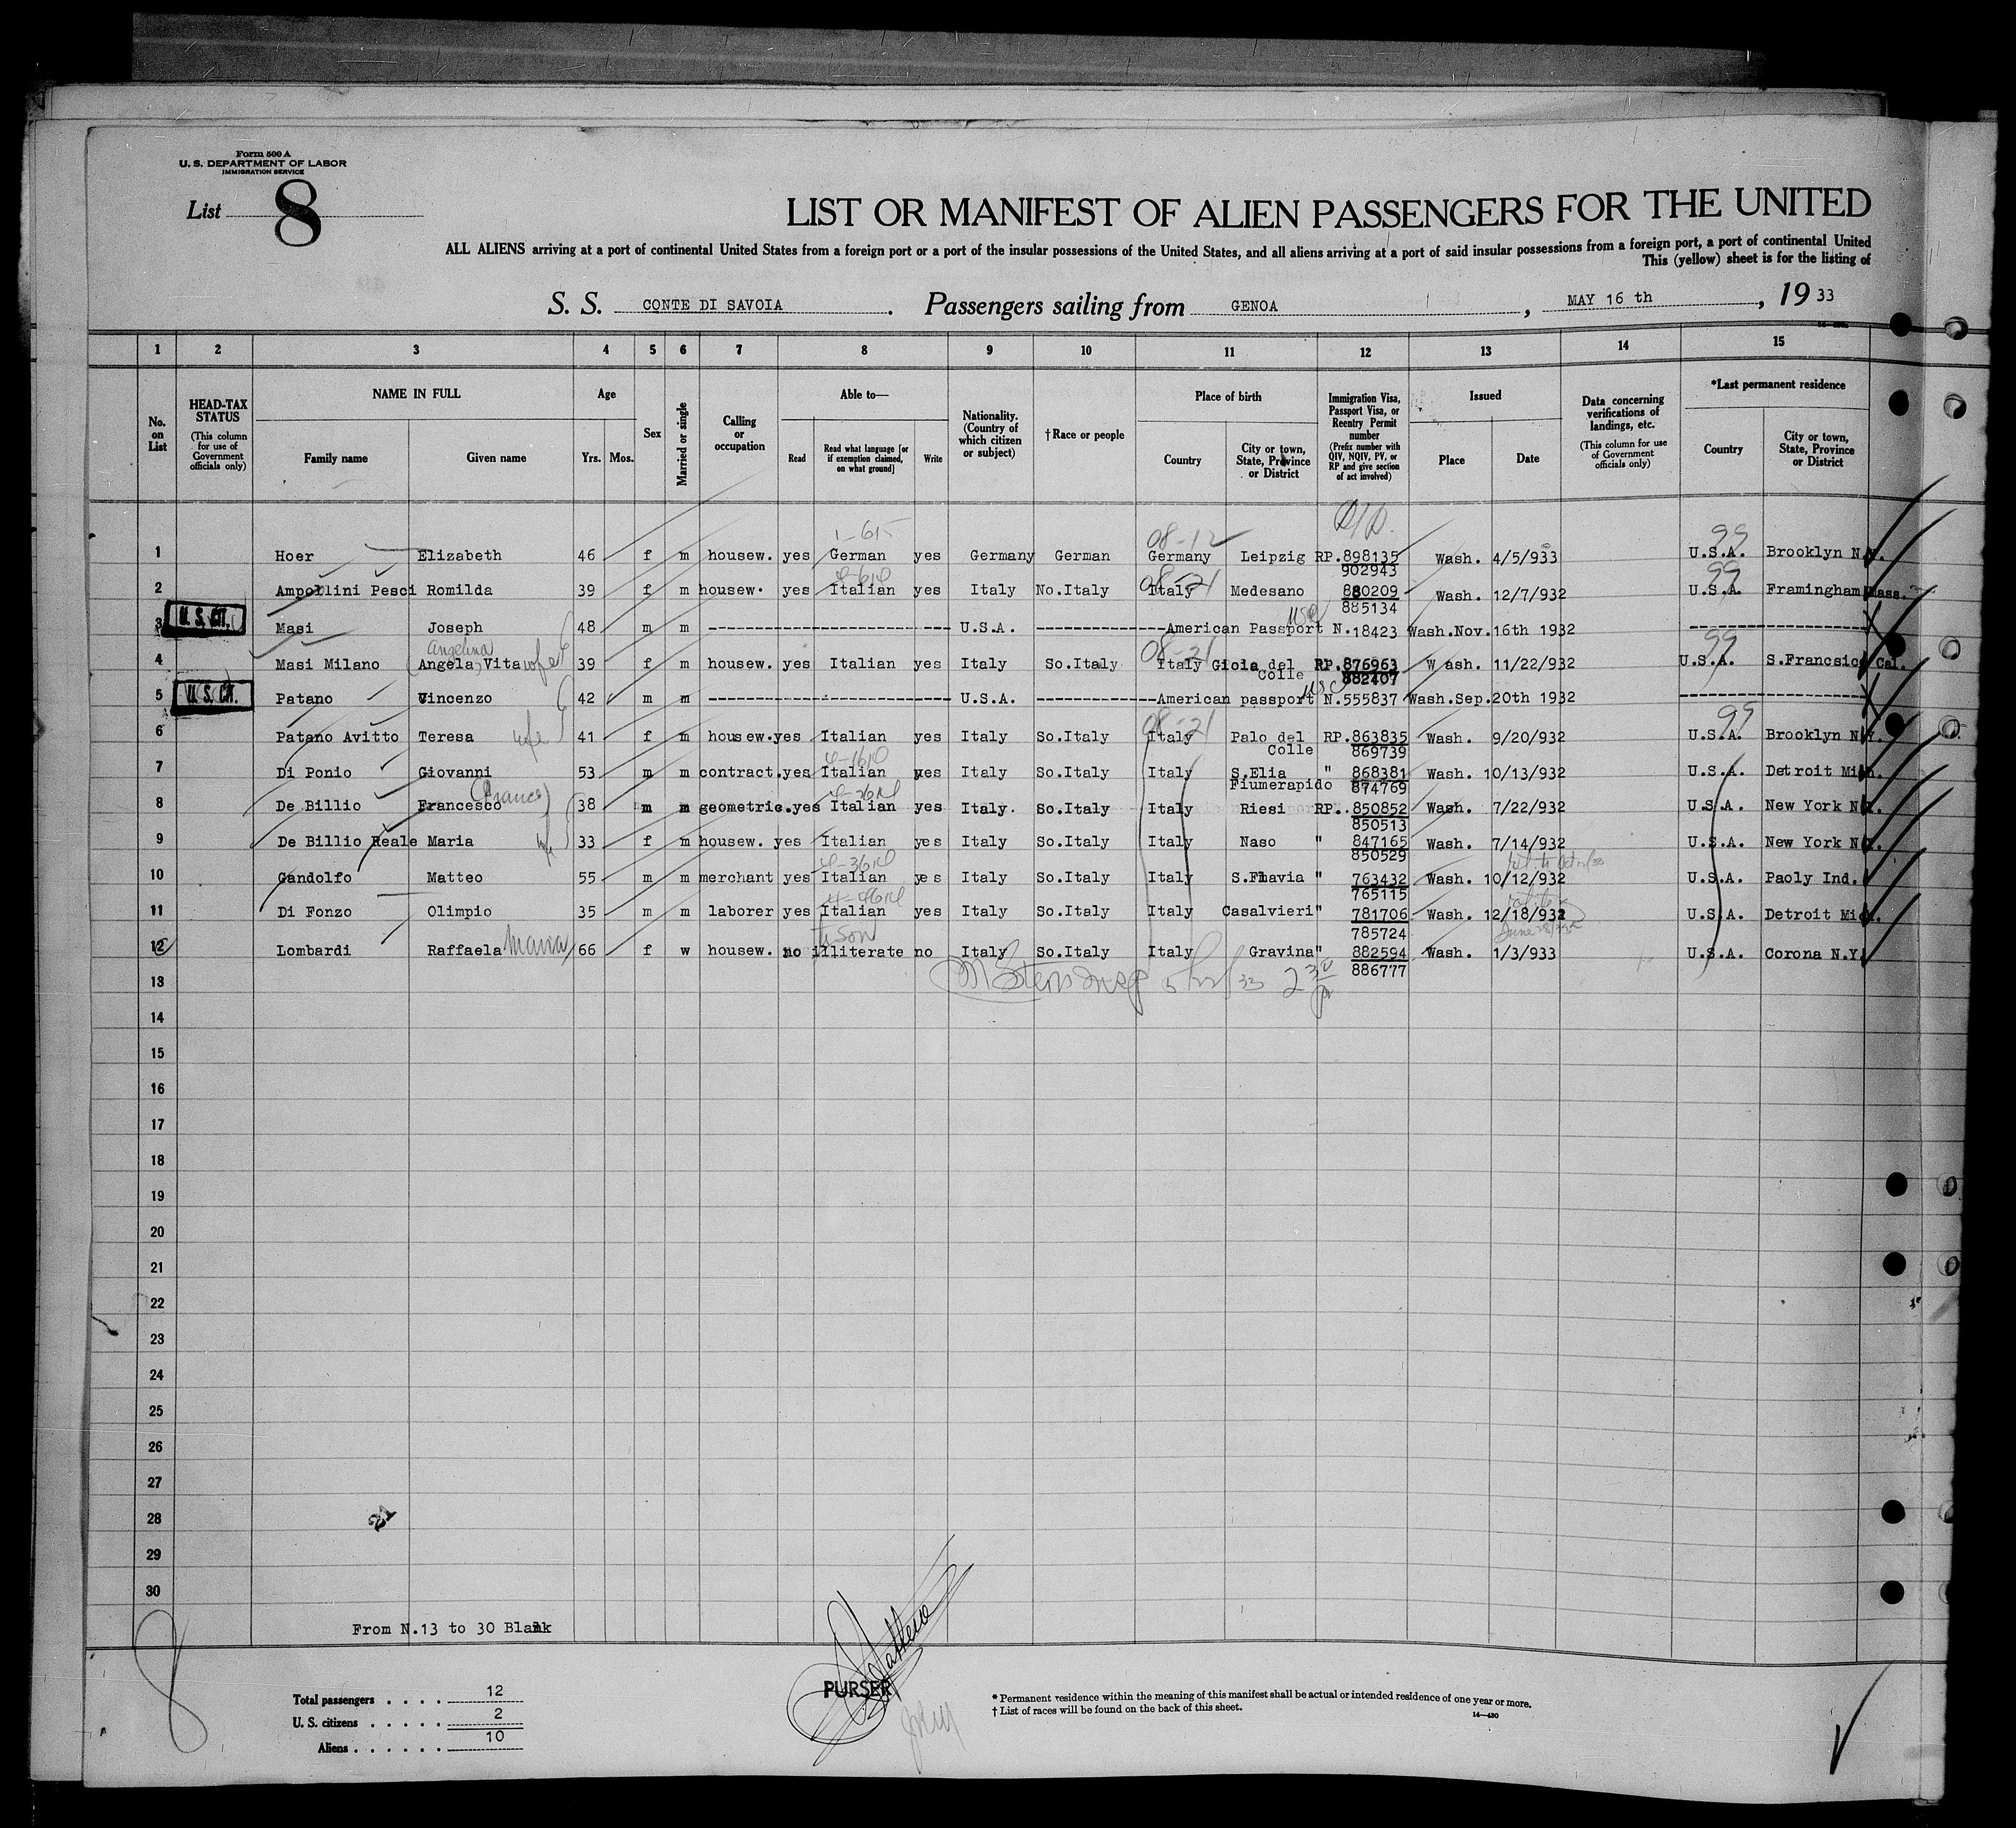 Form 500 A
U. S. DEPARTMENT OF LABOR
IMMIGRATION SERVICE
List 8
LIST OR MANIFEST OF ALIEN PASSENGERS FOR THE UNITED
ALL ALIENS arriving at a port of continental United States from a foreign port or a port of the insular possessions of the United States, and all aliens arriving at a port of said insular possessions from a foreign port, a port of continental United
This (yellow) sheet is for the listing of
S. S. CONTE DI SAVOIA. Passengers sailing from GENOA, MAY 16 th, 19 33
1 2 3 4 5 6 7 8 9 10 11 12 13 14 15
No. on List
HEAD-TAX STATUS (This column for use of Government officials only)
NAME IN FULL
Family name
Given name
Age
Yrs. Mos.
Sex
Married or single
Calling or occupation
Able to—
Read
Read what language [or if exemption claimed, on what ground]
Write
Nationality. (Country of which citizen or subject)
†Race or people
Place of birth
Country
City or town, State, Province or District
Immigration Visa, Passport Visa, or Reentry Permit number (Prefix number with QIV, NQIV, PV, or RP and give section of act involved)
Issued
Place
Date
Data concerning verifications of landings, etc. (This column for use of Government officials only)
*Last permanent residence
Country
City or town, State, Province or District
1-615 08-12 99
1 Hoer Elizabeth 46 f m housew. yes German yes Germany German Germany Leipzig RP.898135 Wash. 4/5/933 U.S.A. Brooklyn N.Y.
902943
08-21 99
2 Ampollini Pesci Romilda 39 f m housew. yes Italian yes Italy No.Italy Italy Medesano 880209 Wash. 12/7/932 U.S.A. Framingham Mass.
885134
U. S. CIT.
3 Masi Joseph 48 m m U.S.A. American Passport N.18423 Wash.Nov.16th 1932
Angelina 08-21 99
4 Masi Milano (Angela) Vita wife 39 f m housew. yes Italian yes Italy So.Italy Italy Gioia del Colle RP.876963 Wash. 11/22/932 U.S.A. S.Francsico Cal.
882407
U. S. CIT.
5 Patano Vincenzo 42 m m U.S.A. American passport N.555837 Wash.Sep.20th 1932
08-21 99
6 Patano Avitto Teresa wife 41 f m housew.yes Italian yes Italy So.Italy Italy Palo del Colle RP.863835 Wash. 9/20/932 U.S.A. Brooklyn N.Y.
869739
7 Di Ponio Giovanni 53 m m contract.yes Italian yes Italy So.Italy Italy S.Elia Fiumerapido " 868381 Wash. 10/13/932 U.S.A. Detroit Mich.
874769
8 De Billio Francesco 38 m m geometric.yes Italian yes Italy. So.Italy Italy Riesi RP.850852 Wash. 7/22/932 U.S.A. New York N.Y.
850513
9 De Billio Reale Maria wf 33 f m housew. yes Italian yes Italy So.Italy Italy Naso " 847165 Wash. 7/14/932 U.S.A. New York N.Y.
850529
10 Gandolfo Matteo 55 m m merchant yes Italian yes Italy So.Italy Italy S.Flavia " 763432 Wash. 10/12/932 U.S.A. Paoly Ind.
765115
11 Di Fonzo Olimpio 35 m m laborer yes Italian yes Italy So.Italy Italy Casalvieri" 781706 Wash. 12/18/932 U.S.A. Detroit Mich.
785724
12 Lombardi Raffaela Maria 66 f w housew. no illiterate no Italy So.Italy Italy Gravina" 882594 Wash. 1/3/933 U.S.A. Corona N.Y.
886777
13
14
15
16
17
18
19
20
21
22
23
24
25
26
27
28
29
30
From N.13 to 30 Blank
8
Total passengers . . . . 12
U. S. citizens . . . . . 2
Aliens . . . . . . 10
PURSER
* Permanent residence within the meaning of this manifest shall be actual or intended residence of one year or more.
† List of races will be found on the back of this sheet.
14—430